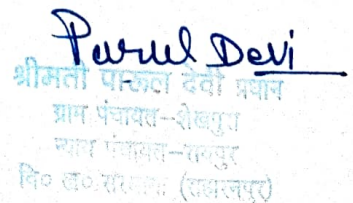 Parul Devi
श्रीमती पारूल देवी प्रधान
ग्राम पंचायत-शेखपुरा
न्याय पंचायत-रायपुर
वि० ख० सरसावा (सहारनपुर)